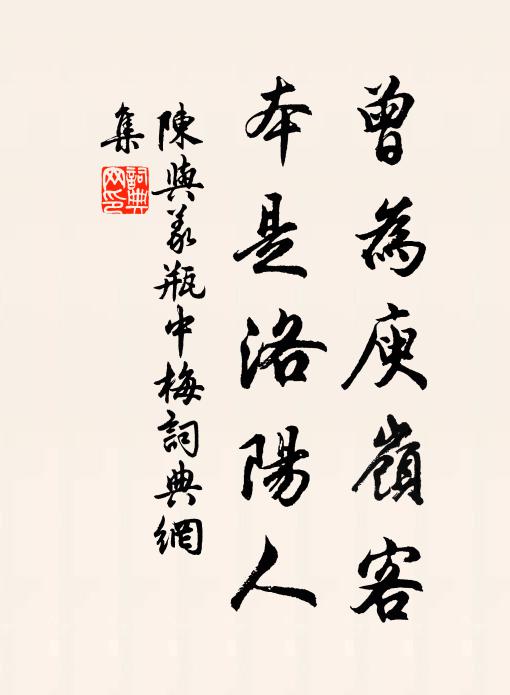 曾為庾嶺客
本是洛陽人
陳與義瓶中梅詞典網
集
詞典網印